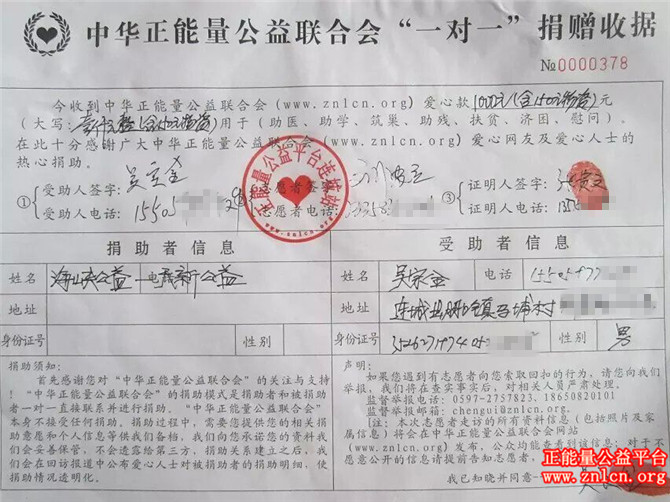 中华正能量公益联合会“一对一”捐赠收据
№0000378
今收到中华正能量公益联合会(www.znlcn.org)爱心款1000元(含150元物资)元
(大写: 用于(助医、助学、筑巢、助残、扶贫、济困、慰问)。
在此十分感谢广大中华正能量公益联合会(www.znlcn.org)爱心网友及爱心人士的
热心捐助。
① 受助人签字: 志愿者签字: ③ 证明人签字:
受助人电话:15505 志愿者电话: 证明人电话:
正能量公益平台连城站
www.znlcn.org
捐助者信息 受助者信息
姓名 公益 公益 姓名 电话
地址 地址 连城县朋口镇 村
身份证号 性别 身份证号 性别 男
捐助须知:
首先感谢您对“中华正能量公益联合会”的关注与支持
!“中华正能量公益联合会”的捐助模式是捐助者和被捐助
者一对一直接联系并进行捐助。“中华正能量公益联合会”
本身不接受任何捐助。捐助过程中,需要您提供您的相关捐
助意愿和个人信息等供我们备档。我们向您承诺您的资料我
们会妥善保管,不会透露给第三方。捐助关系建立之后,我
们会在回访报道中公布爱心人士对被捐助者的捐助明细,使
捐助情况透明化。
声明:
如果您遇到有志愿者向您索取回扣的行为,请您向我们
举报,我们将在查实事实后,对相关人员严肃处理。
监督举报电话:0597-2757823、18650820101
监督举报邮箱:chengui@znlcn.org。
[注:本次志愿者走访的所有资料信息(包括照片及家
属信息)将会在中华正能量公益联合会网站
(www.znlcn.org)发布,公众均能查看到该信息;对于不
愿意公开的信息请提前告知志愿者,
我已知晓并同意
正能量公益网
www.znlcn.org